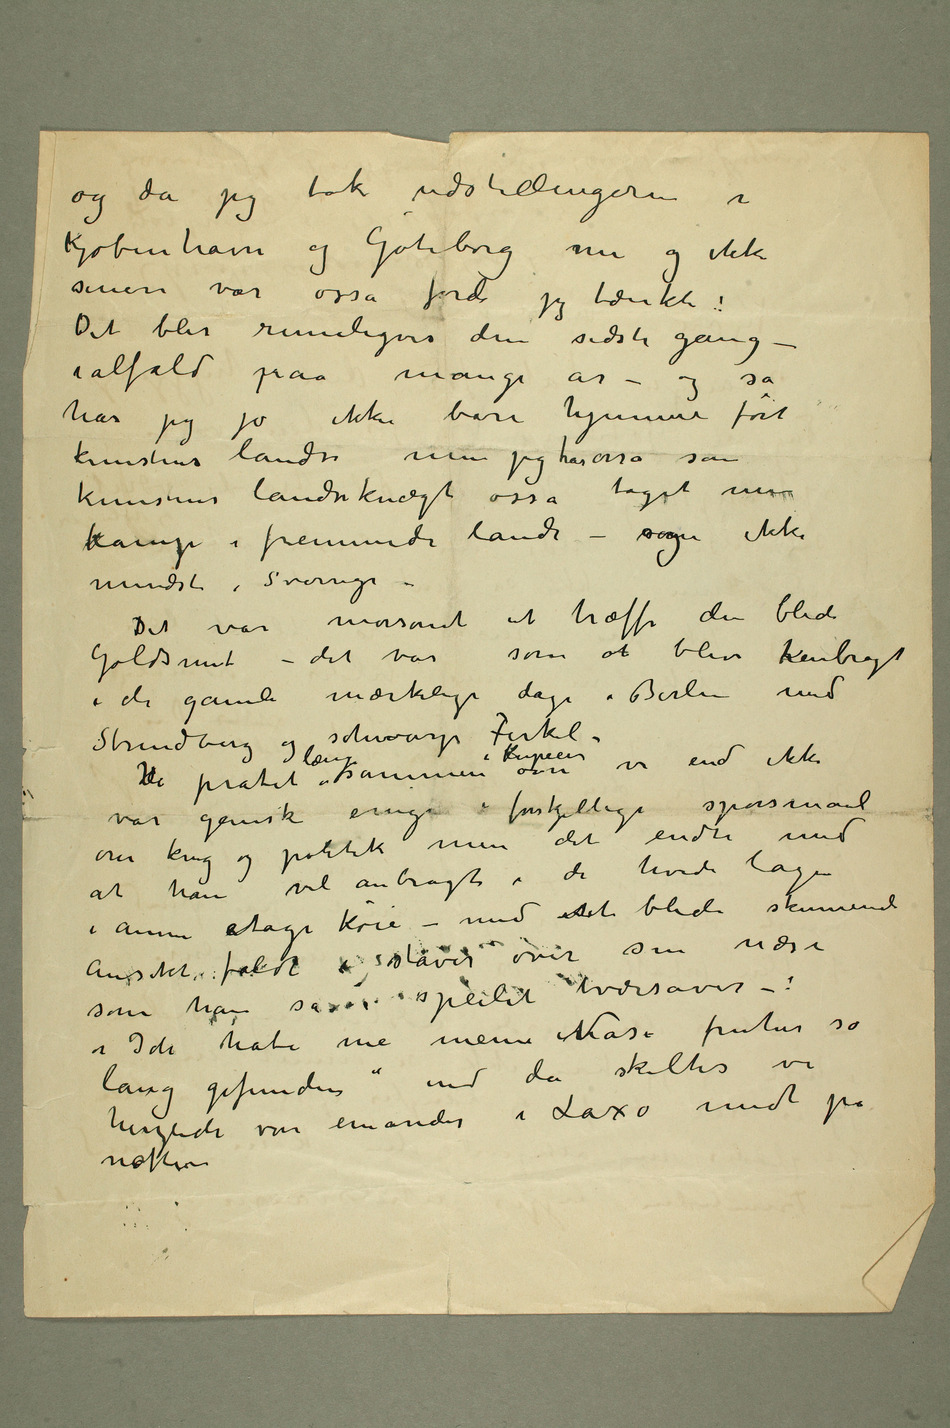 og da jeg tok udstillingerne i
Kjøbenhavn og Göteborg nu og ikke
senere var osså fordi jeg tænkte:
Det blir rimeligvis den sidste gang –
ialfald paa mange år – og så
har jeg jo ikke bare hjemme ført
kunstens landse men jeg har osså som
kunstens landseknægt osså taget min
kamp i fremmede lande – og ikke
mindst i Sverrige –
Det var morsomt at træffe den blide
Goldsmit – det var som at blive henbragt
i de gamle mærkelige dage i Berlin med
Strindberg og schwarze Ferkel –
Vi pratet længe sammen i Kupeen om vi end ikke
var ganske enige i forskjellige spørsmaal
om krig og politik men det endte med
at han vel anbragt i de hvide lagen
i anden etage køie – med et blide skinnende
ansikt faldt i staver over sin næse
som han så i speilet tværsover – :
„Ich habe nie meine Nase früher so
lang gefunden“ und da skiltes vi
herzlich von einander i Laxå midt på
natten